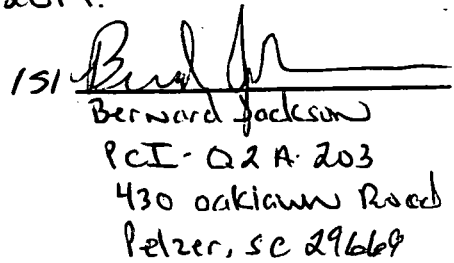 2019.
/S/
Bernard Jackson
PCI- Q2 A. 203
430 oaklawn Road
Pelzer, SC 29669